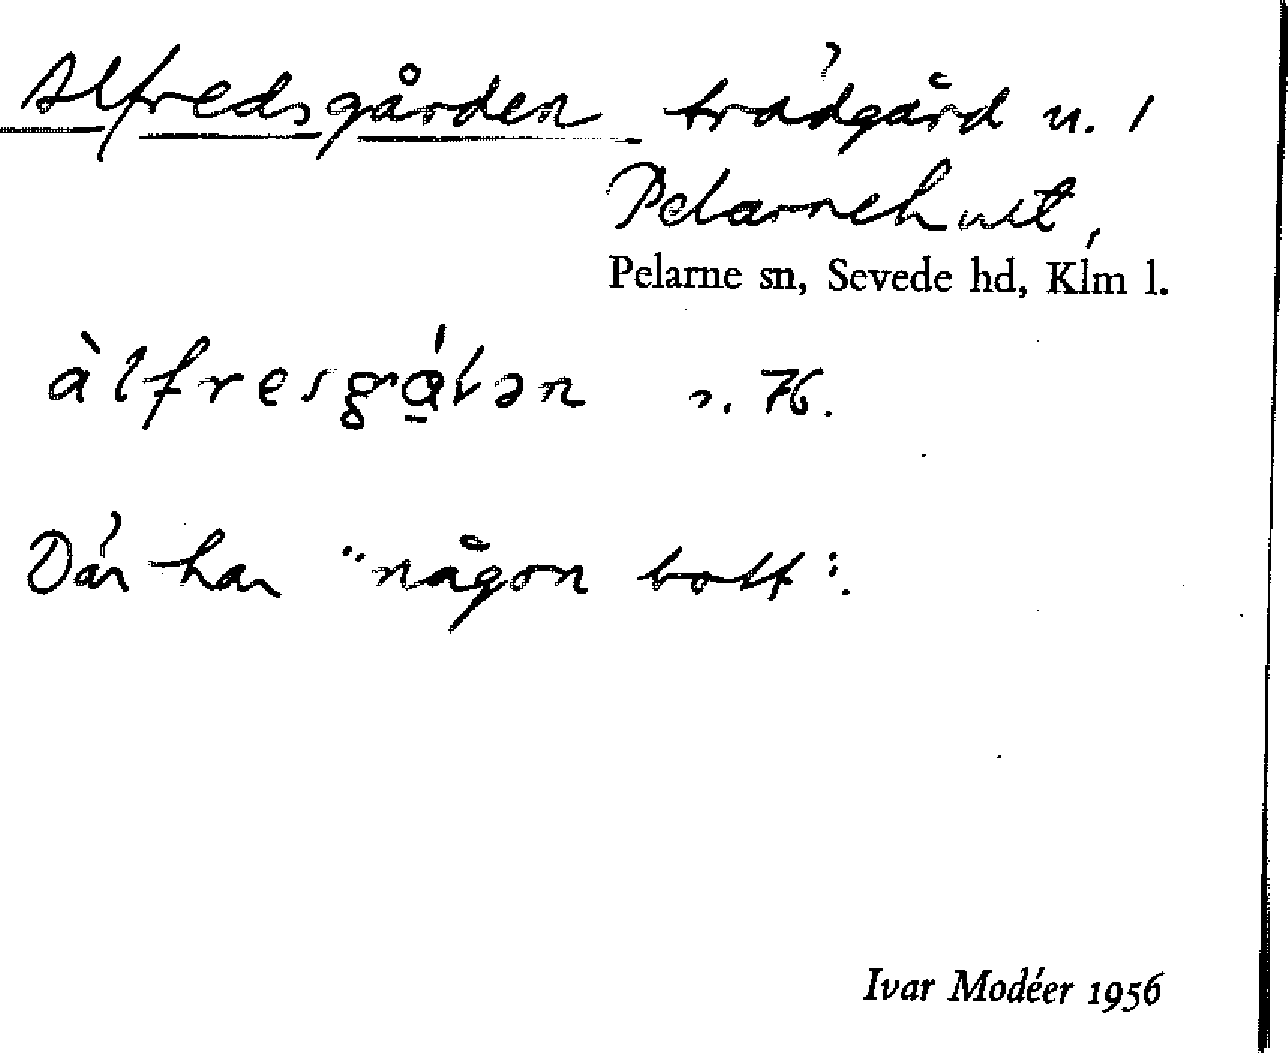 Alfredsgården trädgård u. 1
Pelarnehult,
Pelarne sn, Sevede hd, Klm l.
àlfresgá̱lən n. 76.
Där har "någon bott".
Ivar Modéer 1956